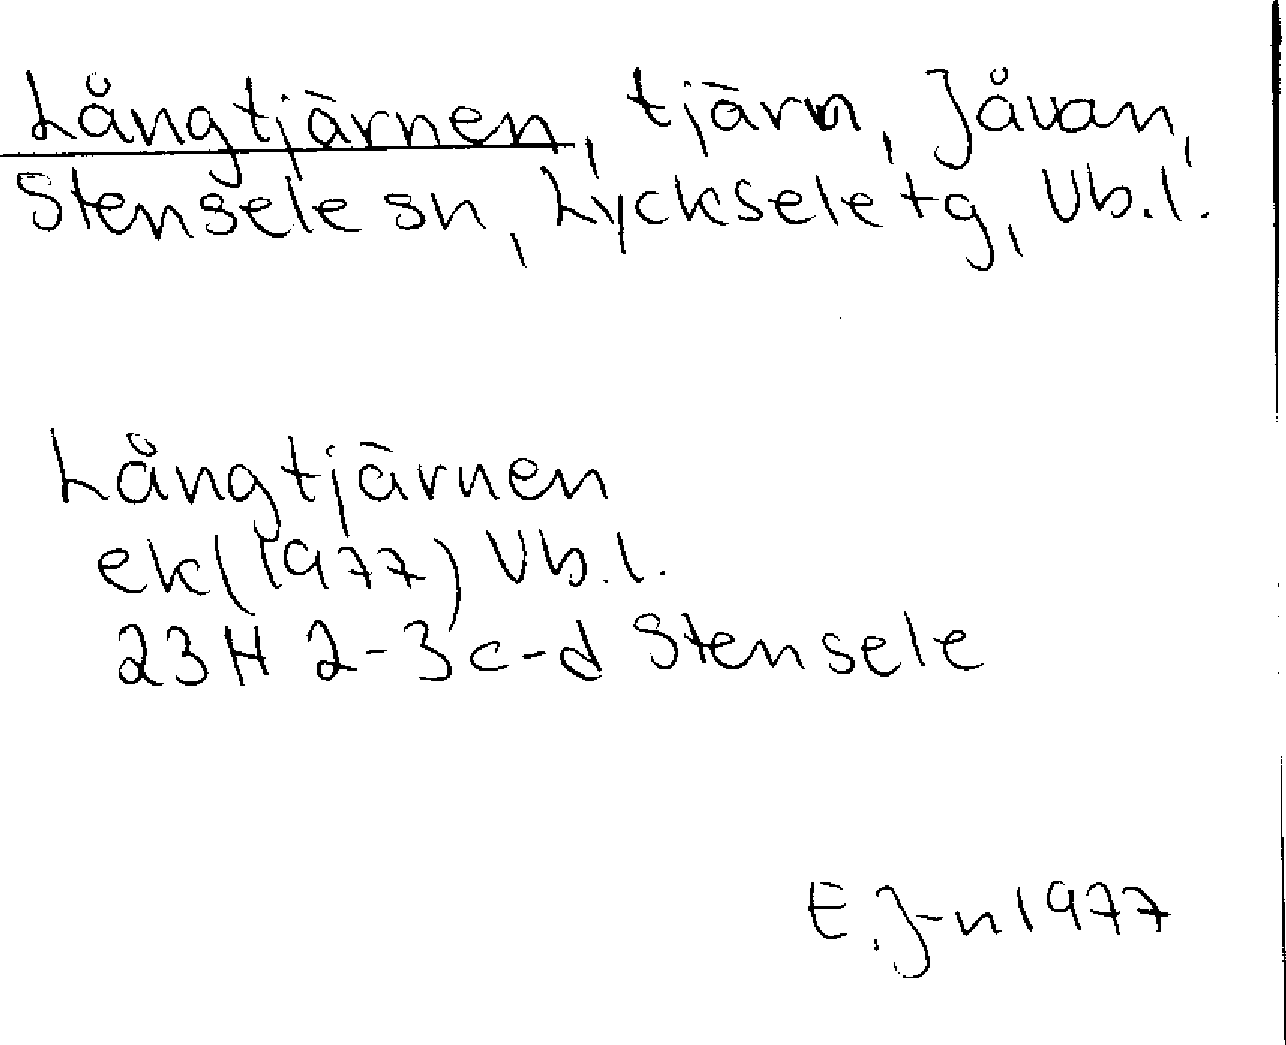 Långtjärnen, tjärn, Jåvan,
Stensele sn, Lycksele tg, Vb.l.
Långtjärnen
ek (1977) Vb.l.
23H 2-3c-d Stensele
E.J-n 1977